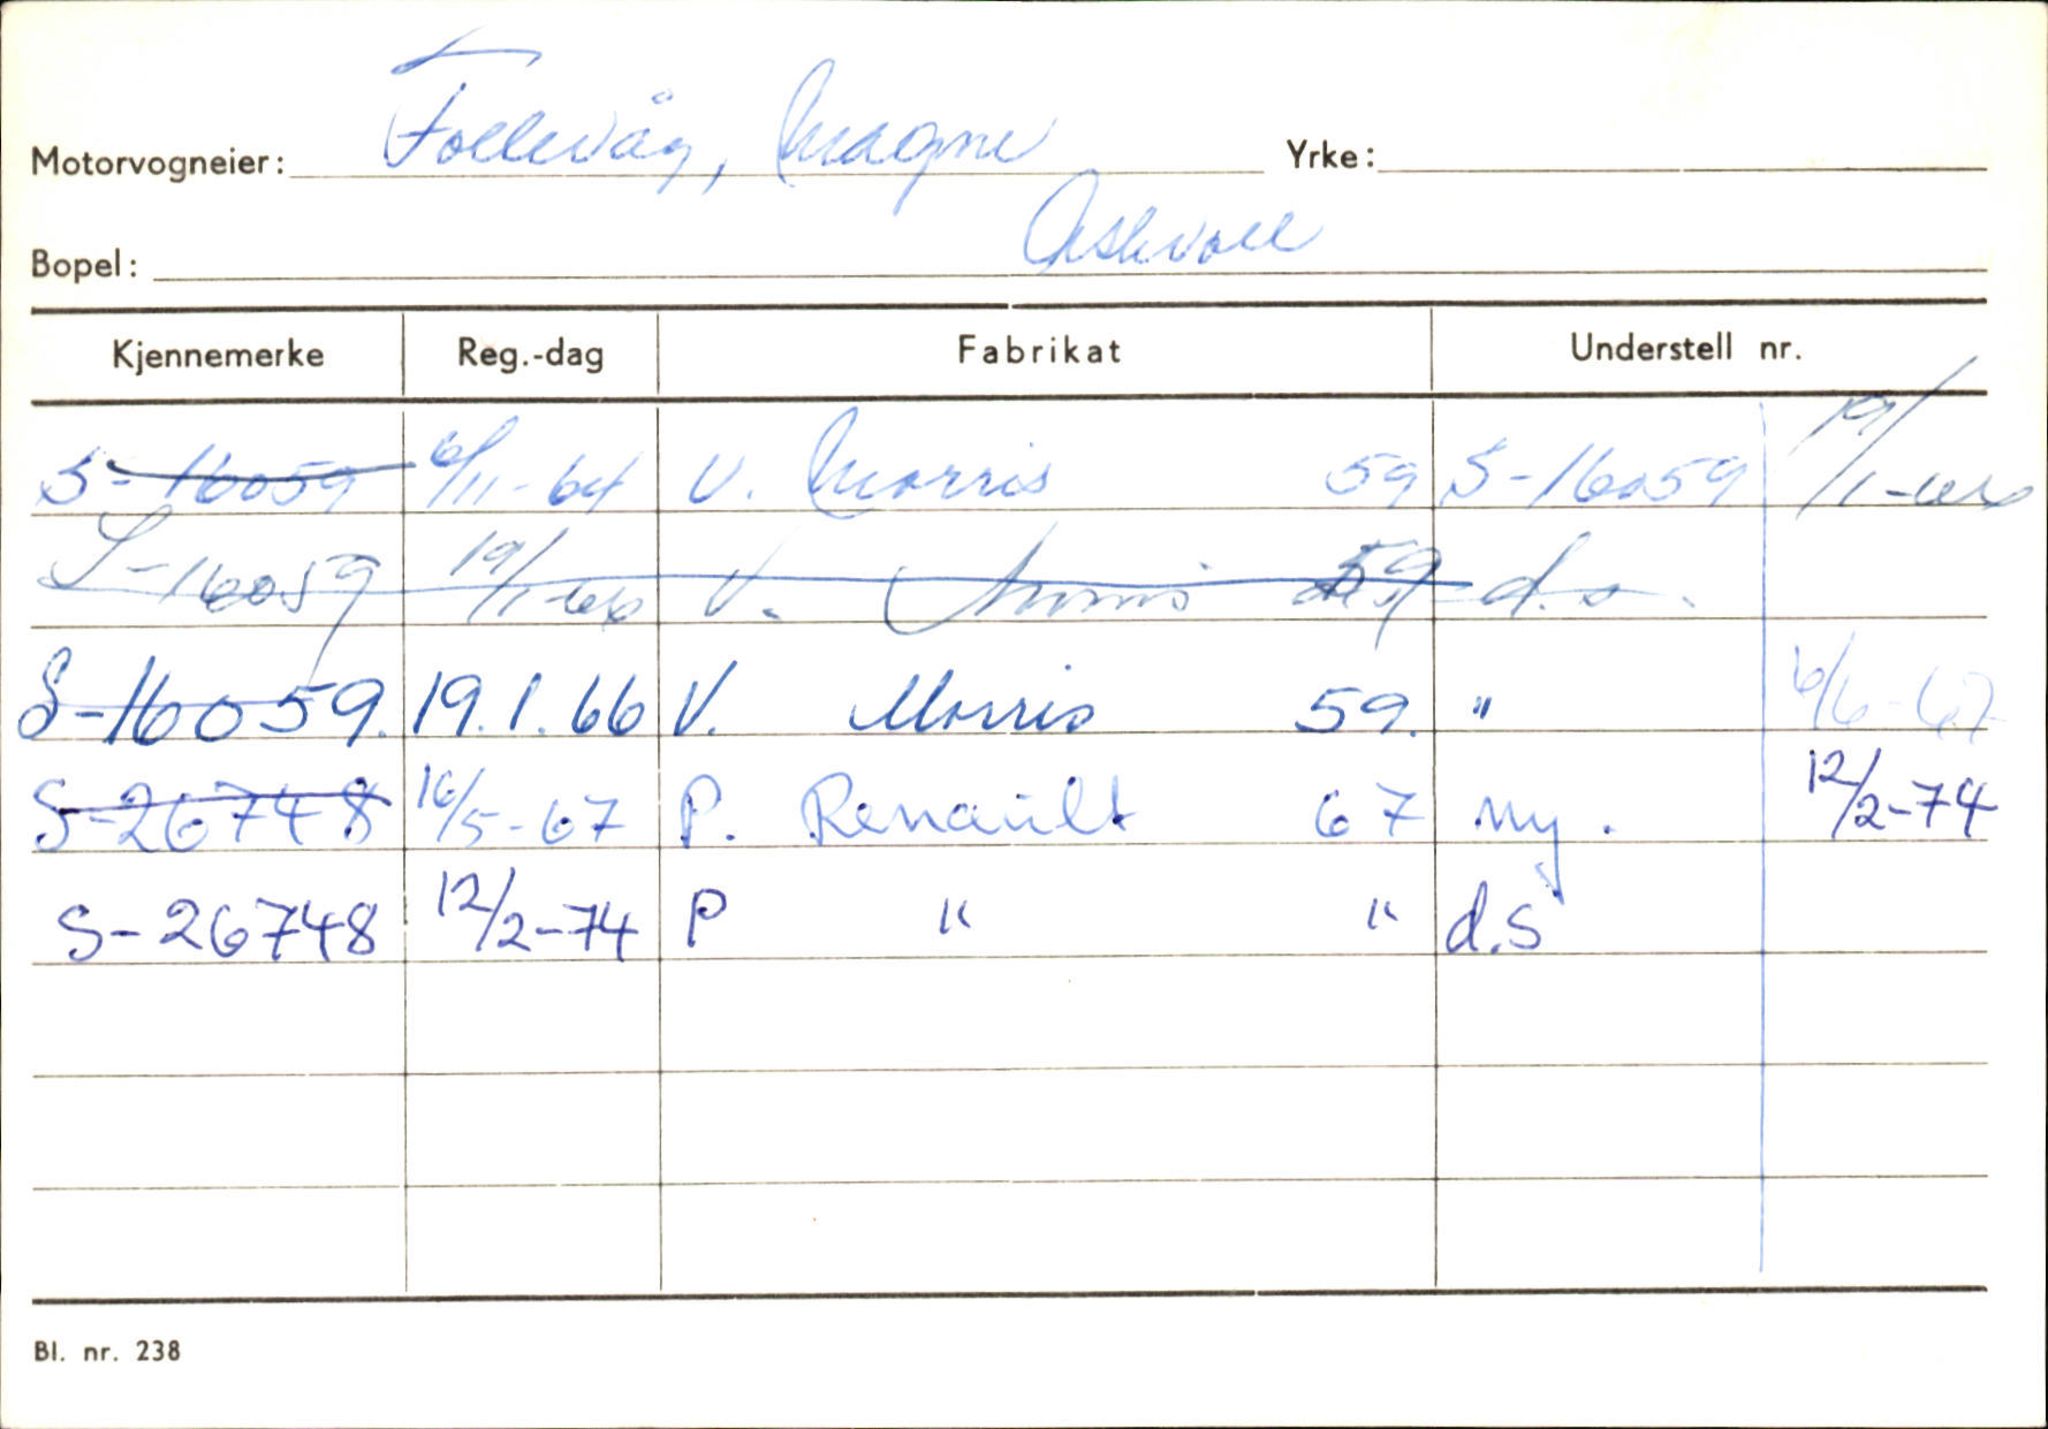 Motorvogneier: Follevåg, Magne Yrke:
Bopel: Askvoll
Kjennemerke Reg.-dag Fabrikat Understell nr.
S-16059 6/11-64 V. Morris 59 S-16059 19/1-66
S-16059 19/1-66 V. Morris 59 d.s.
S-16059. 19.1.66 V. Morris 59. " 6/6-67
S-26748 16/5-67 P. Renault 67 ny. 12/2-74
S-26748 12/2-74 P " " d.s
Bl. nr. 238